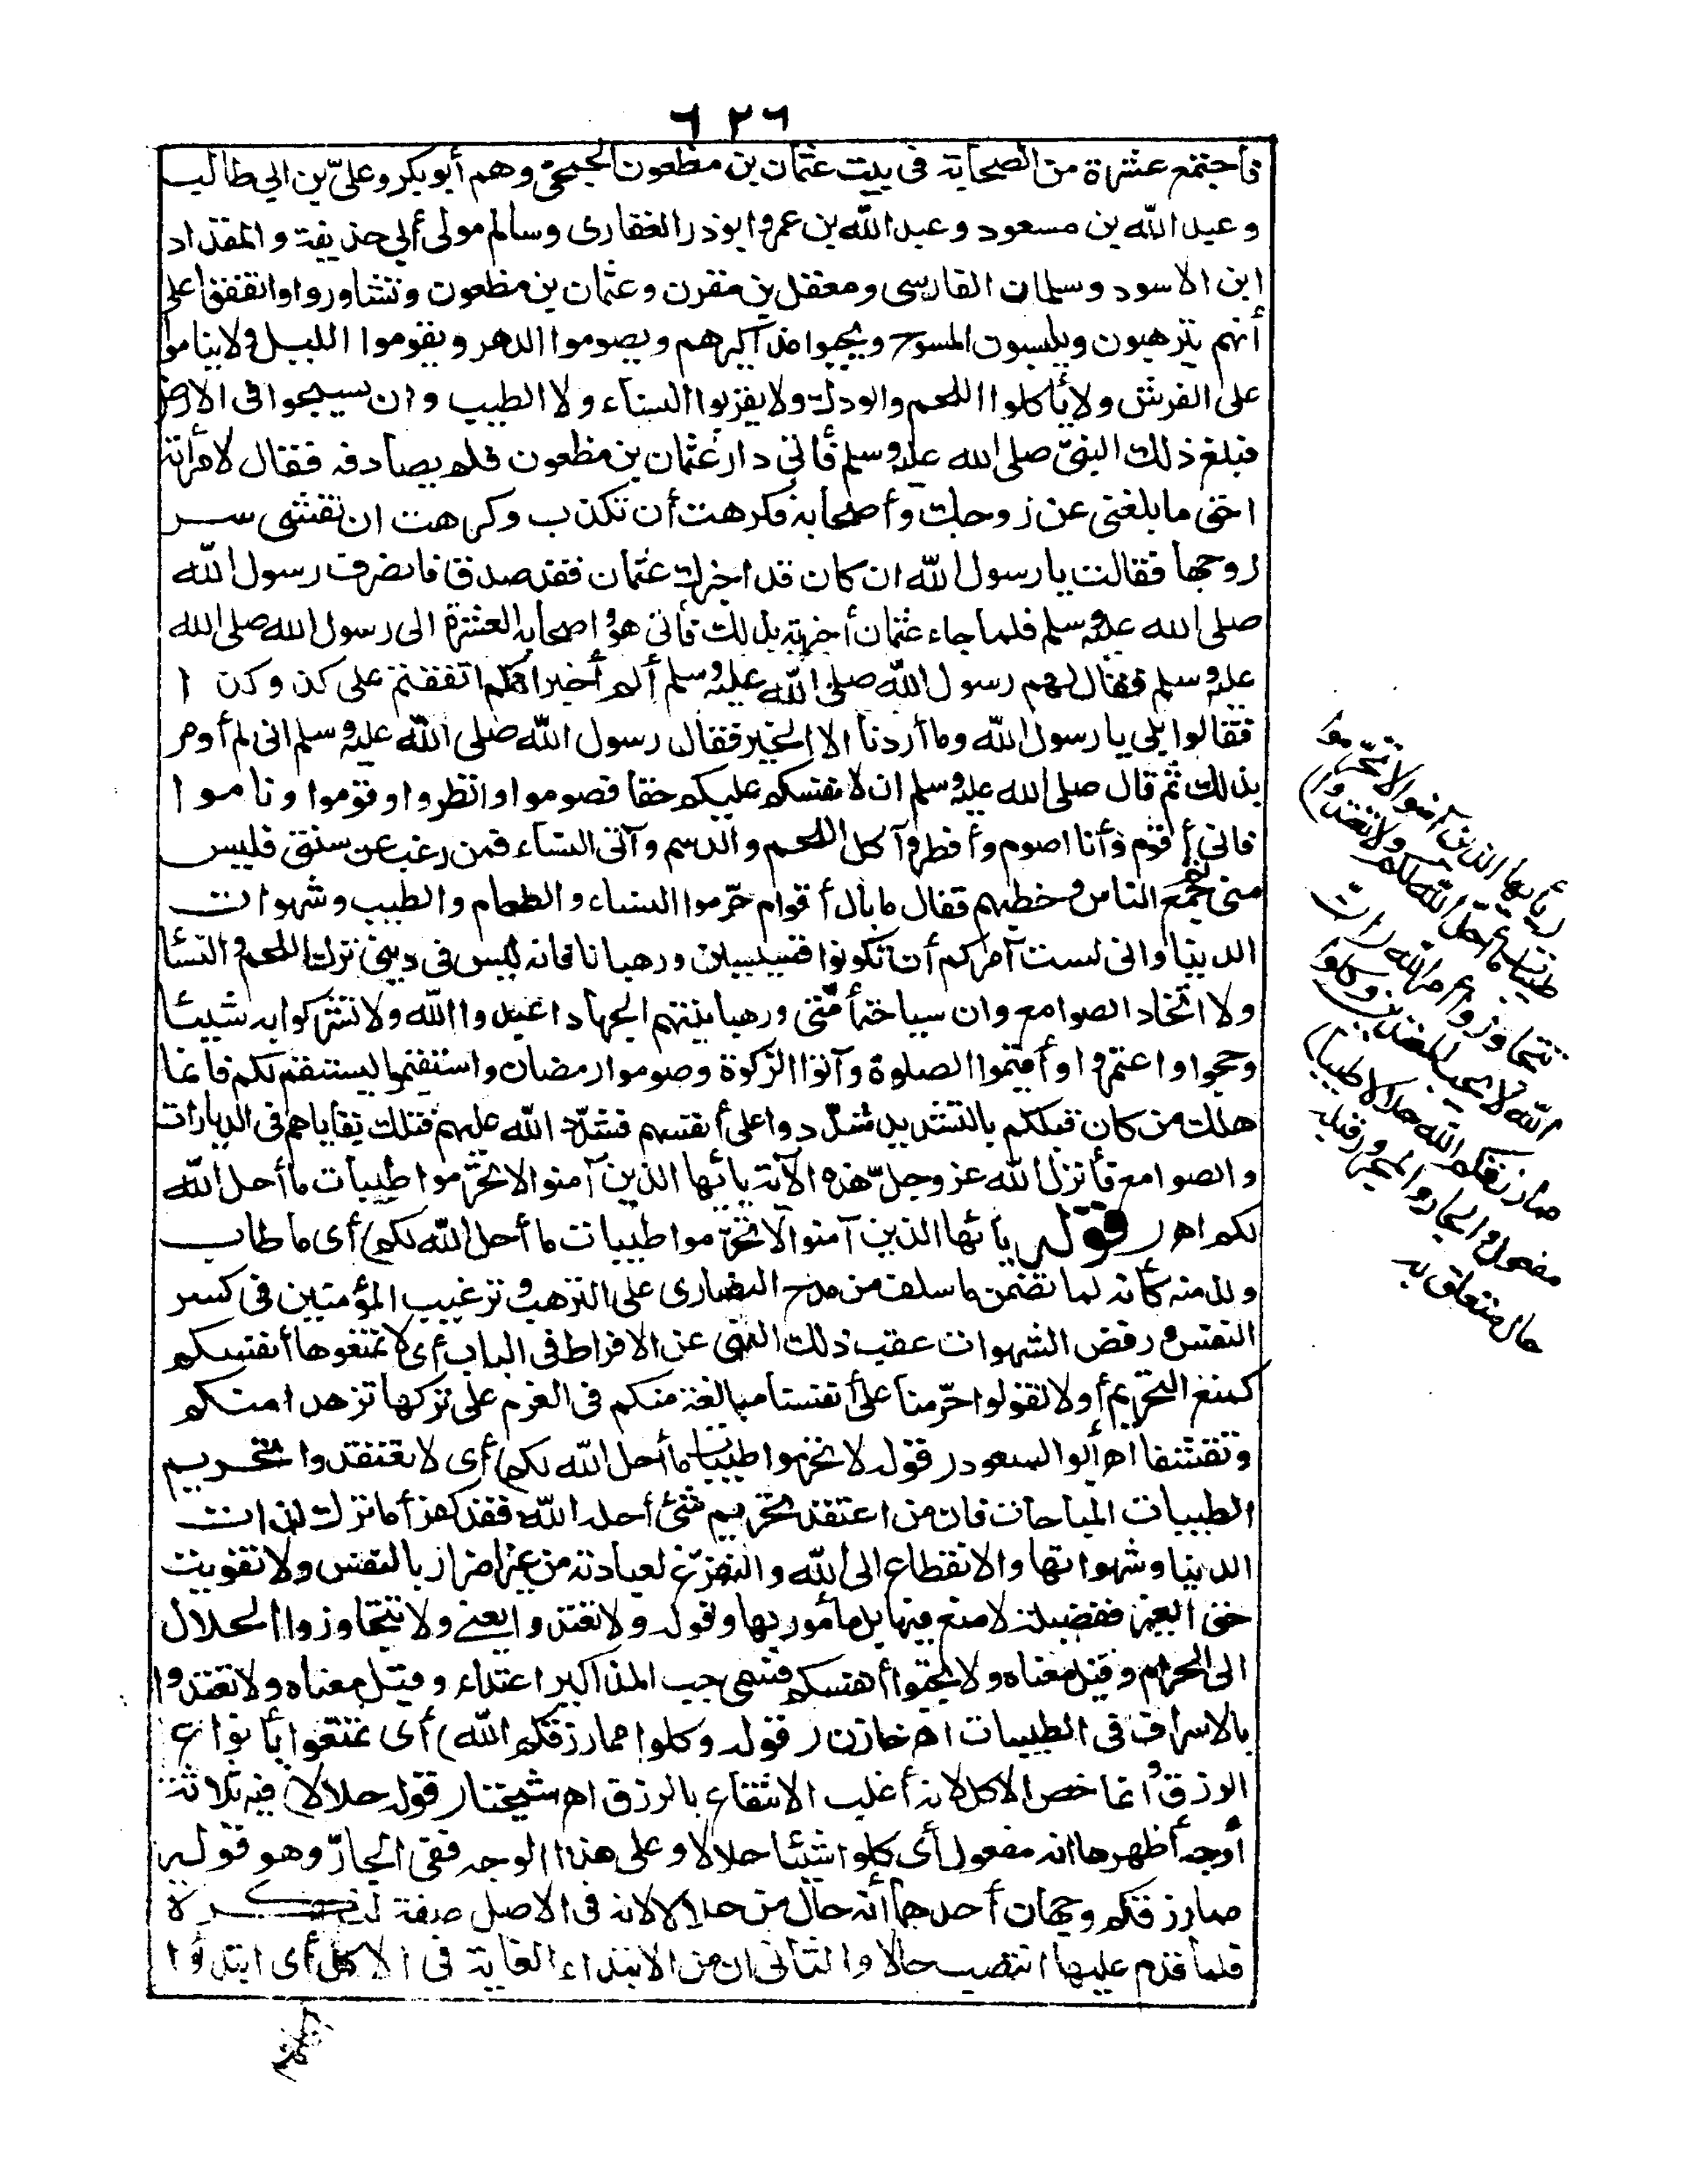 ٦٢٦
فاجتمع عشرة من الصحابة فى بيت عثمان بن مظعون الجمحىّ وهم أبو بكر وعلىّ بن ابي طالب
وعبد الله بن مسعود وعبد الله بن عمرو ابوذر الغفارى وسالم مولى أبي حذيفة والمقداد
ابن الاسود وسلمان الفارسى ومعقل بن مقرن وعثمان بن مظعون وتشاوروا واتفقوا على
أنهم يترهبون ويلبسون المسوح ويجبوا مذاكيرهم ويصوموا الدهر ويقوموا الليل ولا يناموا
على الفرش ولا يأكلوا اللحم والودك ولا يقربوا النساء ولا الطيب وان سيحوا فى الارض
فبلغ ذلك النبىّ صلى الله عليه وسلم فأتى دار عثمان بن مظعون فلم يصادفه فقال لامرأته
احق ما بلغنى عن زوجك وأصحابه فكرهت أن تكذب وكرهت ان تفشى سر
زوجها فقالت يا رسول الله ان كان قد اخبرك عثمان فقد صدق فانصرف رسول الله
صلى الله عليه وسلم فلما جاء عثمان أخبرته بذلك فأتى هو واصحابه العشرة الى رسول الله صلى الله
عليه وسلم فقال لهم رسول الله صلى الله عليه وسلم ألم أخبر انكم اتفقتم على كذا وكذا
فقالوا بلى يا رسول الله وما أردنا الا الخير فقال رسول الله صلى الله عليه وسلم انى لم أومر
بذلك ثم قال صلى الله عليه وسلم ان لانفسكم عليكم حقا فصوموا وافطروا وقوموا وناموا
فانى أقوم وأنا اصوم وأفطر وآكل اللحم والدسم وآتى النساء فمن رغب عن سنتى فليس
منى ثم جمع الناس وخطبهم فقال ما بال أقوام حرّموا النساء والطعام والطيب وشهوات
الدنيا وانى لست آمركم أن تكونوا قسيسين ورهبانا فانه ليس فى دينى ترك اللحم والنسا
ولا اتخاذ الصوامع وان سياحة أمّتى ورهبانيتهم الجهاد اعبدوا الله ولا تشركوا به شيئا
وحجوا واعتمروا وأقيموا الصلوة وآتوا الزكوة وصوموا رمضان واستقيموا ليستقم لكم فانما
هلك من كان قبلكم بالتشديد شدّدوا على أنفسهم فشدّد الله عليهم فتلك بقاياهم فى الديارات
والصوامع فأنزل الله عز وجلّ هذه الآية يا أيها الذين آمنوا لا تحرّموا طيبات ما أحل الله
لكم اه (قوله يا أيها الذين آمنوا لا تحرّموا طيبات ما أحل الله لكم) أى ما طاب
ولذ منه كأنه لما تضمن ما سلف من مدح النصارى على الترهب وترغيب المؤمنين فى كسر
النفس ورفض الشهوات عقب ذلك النهى عن الافراط فى الباب أى لا تمنعوها أنفسكم
كمنع التحريم أو لا تقولوا حرّمنا على أنفسنا مبالغة منكم فى العزم على تركها تزهدا منكم
وتقشفا اه أبو السعود (قوله لا تحرّموا طيبات ما أحل الله لكم) أى لا تعتقدوا تحريم
الطيبات المباحات فان من اعتقد تحريم شئ أحله الله فقد كفر أما ترك لذات
الدنيا وشهواتها والانقطاع الى الله والتفرّغ لعبادته من غير اضرار بالنفس ولا تفويت
حق الغير ففضيلة لا منع منها بل مأمور بها وقوله ولا تعتدوا يعنى ولا تتجاوزوا الحلال
الى الحرام وقيل معناه ولا تجبّوا أنفسكم فسمى جب المذاكير اعتداء وقيل معناه ولا تعتدوا
بالاسراف فى الطيبات اه خازن (قوله وكلوا مما رزقكم الله) أى تمتعوا بأنواع
الرزق وانما خص الاكل لانه أغلب الانتفاع بالرزق اه شيخنا (قوله حلالا) فيه ثلاثة
أوجه أظهرها انه مفعول أى كلوا شيئا حلالا وعلى هذا الوجه ففى الجارّ وهو قوله
مما رزقكم وجهان أحدهما أنه حال من حلالا لانه فى الاصل صفة لنكرة
فلما قدم عليها انتصب حالا والثانى ان من لابتداء الغاية فى الاكل أى ابتدؤا
(يا أيها الذين آمنوا لا تحرّموا
طيبات ما أحل الله لكم ولا تعتدوا)
تتجاوزوا أمر الله (ان
الله لا يحب المعتدين وكلوا
مما رزقكم الله حلالا طيبا)
مفعول والجار والمجرور قبله
حال متعلق به